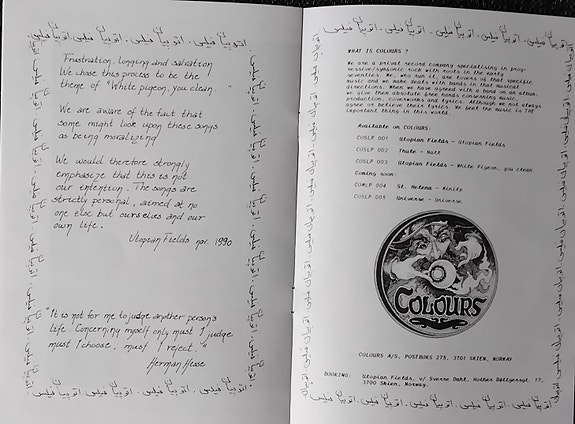 Frustration, longing and salvation!
We chose this process to be the
theme of "White pigeon, you clean..."
We are aware of the fact that
some might look upon these songs
as being moralizing.
We would therefore strongly
emphasize that this is not
our intention. The songs are
strictly personal, aimed at no
one else but ourselves and our
own life.
Utopian Fields nov. 1990
"It is not for me to judge another person's
life. Concerning myself only must I judge
must I choose, must I reject."
Herman Hesse
WHAT IS COLOURS ?
We are a privat record company specialising in prog-
ressive/symfonic rock with roots in the early
seventies. We, who run it, are lovers of that specific
music and we make deals with bands in that musical
directions. When we have agreed with a band on an album,
we give them absolute free hands conserning music
production, coverworks and lyrics. Although we not always
agree or believe their lyrics. We feel the music is THE
important thing in this world.
Available on COLOURS:
COSLP 001 Utopian Fields - Utopian Fields
COSLP 002 Thule - Natt
COSLP 003 Utopian Fields - White Pigeon, you clean
Coming soon:
COMLP 004 St. Helena - Minilp
COSLP 005 Universe - Universe
COLOURS
COLOURS A/S, POSTBOKS 275, 3701 SKIEN, NORWAY
BOOKING: Utopian Fields, v/ Sverre Dahl, 17,
3700 Skien, Norway.